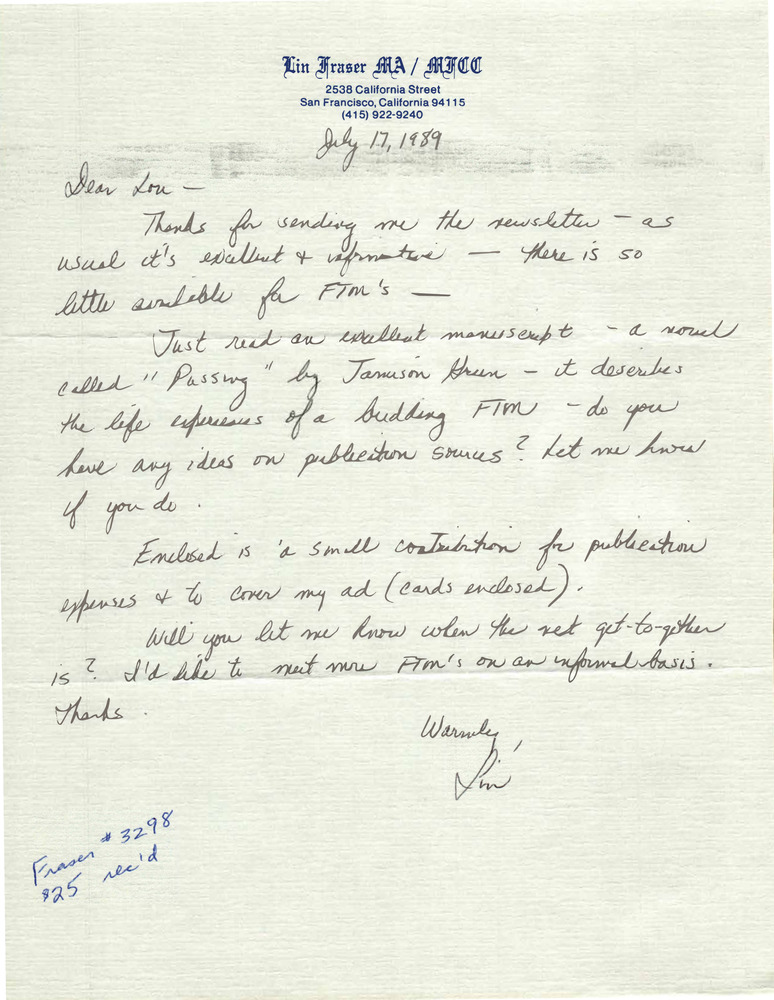 Lin Fraser MA / MFCC
2538 California Street
San Francisco, California 94115
(415) 922-9240
July 17, 1989
Dear Lou —
Thanks for sending me the newsletter — as
usual it's excellent & informative — there is so
little available for FTM's —
Just read an excellent manuscript - a novel
called "Passing" by Jamison Green - it describes
the life experiences of a budding FTM - do you
have any ideas on publication sources? Let me know
if you do.
Enclosed is a small contribution for publication
expenses & to cover my ad (cards enclosed).
Will you let me know when the next get-to-gether
is? I'd like to meet more FTM's on an informal basis.
Thanks.
Warmly,
Lin
Fraser #3298
$25 rec'd